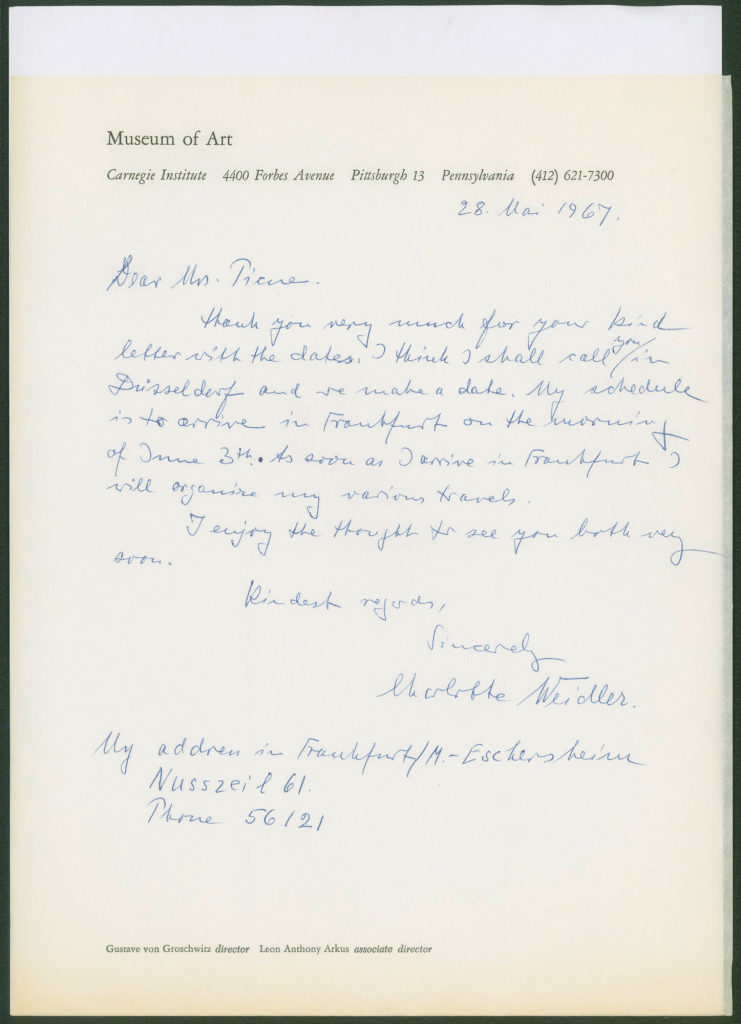 Museum of Art
Carnegie Institute 4400 Forbes Avenue Pittsburgh 13 Pennsylvania (412) 621-7300
28. Mai 1967.
Dear Mrs. Piene.
Thank you very much for your kind
letter with the dates. I think I shall call you in
Düsseldorf and we make a date. My schedule
is to arrive in Frankfurt on the morning
of June 3th. As soon as I arrive in Frankfurt I
will organize my various travels.
I enjoy the thought to see you both very
soon.
Kindest regards,
Sincerely
Charlotte Weidler.
My address in Frankfurt/M.-Eschersheim
Nusszeil 61.
Phone 56121
Gustave von Groschwitz director Leon Anthony Arkus associate director